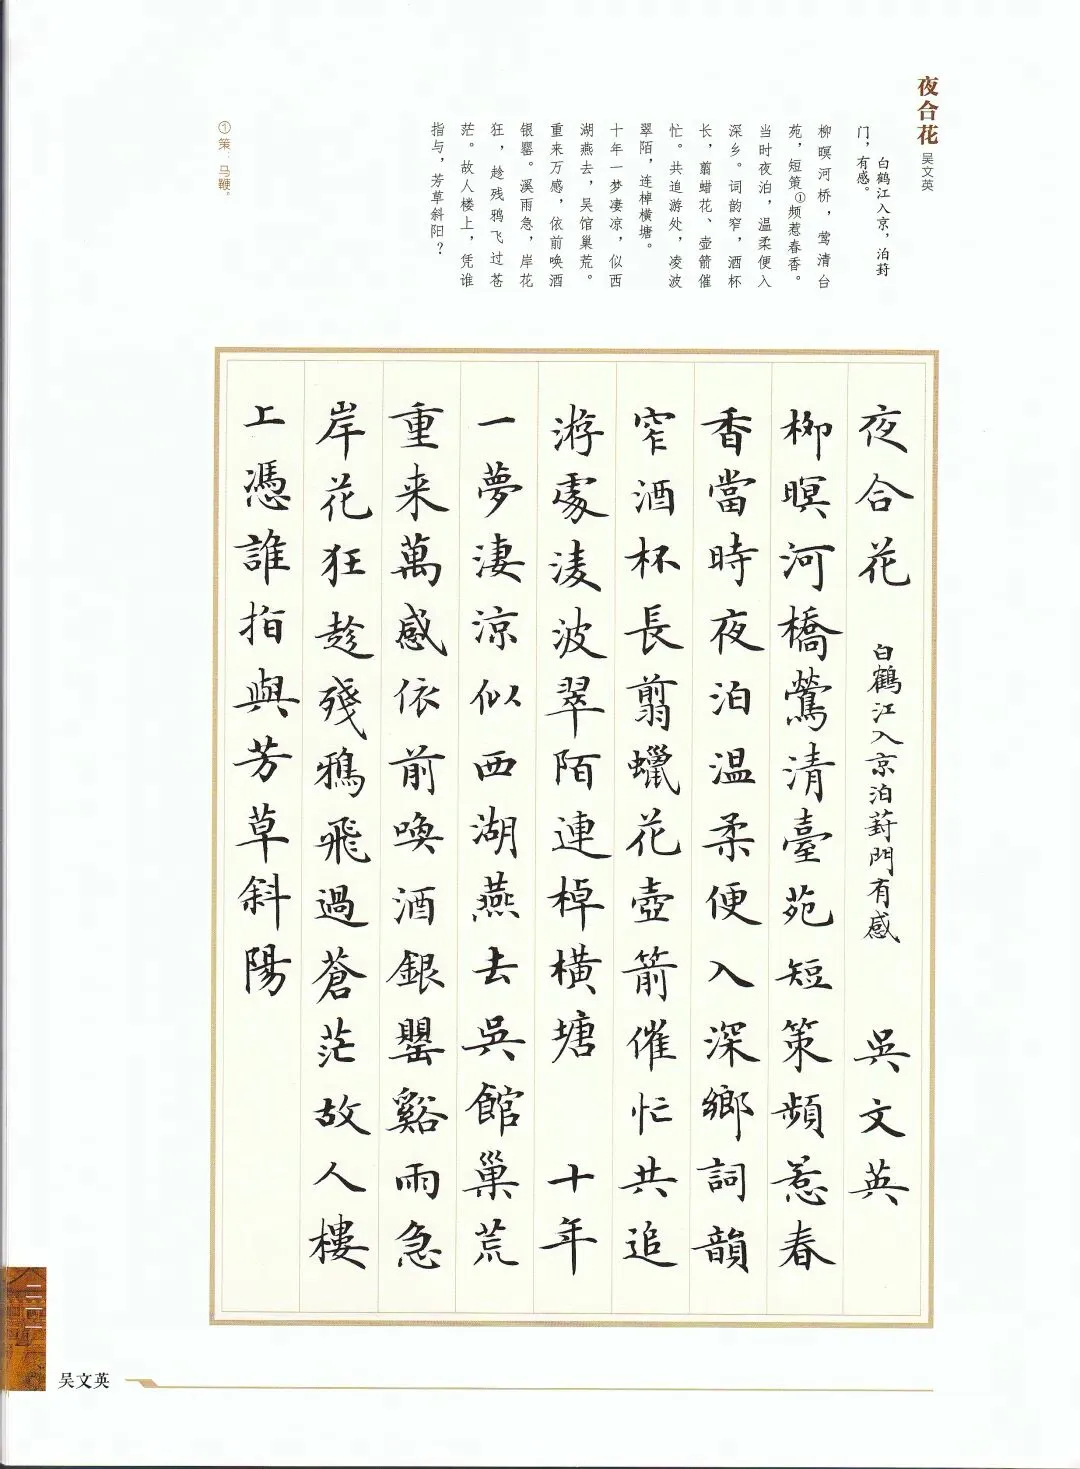 夜合花
吴文英
白鹤江入京，泊葑
门，有感。
柳暝河桥，莺清台
苑，短策①频惹春香。
当时夜泊，温柔便入
深乡。词韵窄，酒杯
长，翦蜡花、壶箭催
忙。共追游处，凌波
翠陌，连棹横塘。
十年一梦凄凉，似西
湖燕去，吴馆巢荒。
重来万感，依前唤酒
银罂。溪雨急，岸花
狂，趁残鸦飞过苍
茫。故人楼上，凭谁
指与，芳草斜阳？
①策：马鞭。
夜合花 白鶴江入京泊葑門有感 吳文英
柳暝河橋鶯清臺苑短策頻惹春
香當時夜泊温柔便入深鄉詞韻
窄酒杯長翦蠟花壺箭催忙共追
游處淩波翠陌連棹橫塘 十年
一夢淒涼似西湖燕去吳館巢荒
重来萬感依前喚酒銀罌谿雨急
岸花狂趁殘鴉飛過蒼茫故人樓
上憑誰指與芳草斜陽
吴文英